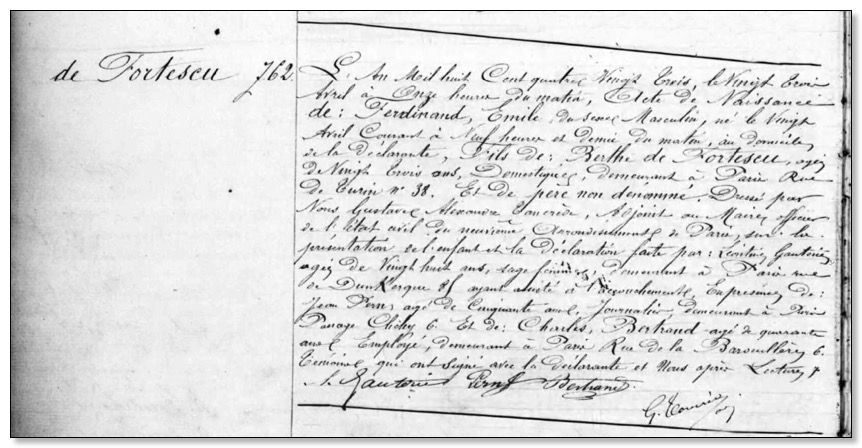 de Fortescu 762
L'An Mil huit Cent quatre Vingt Trois, le Vingt Trois
Avril à Onze heures du matin, Acte de Naissance
de : Ferdinand, Emile, du sexe Masculin, né le Vingt
Avril Courant à Neuf heures et demie du matin, au domicile
de la déclarante, Fils de : Berthe de Fortescu, agée
de Vingt Trois ans, Domestique, demeurant à Paris Rue
de Turin n° 38. Et de père non dénommé. Dressé par
Nous Gustave Alexandre Adjoint au Maire, officier
de l'état civil du neuvième Arrondissement de Paris, sur la
présentation de l'enfant et la déclaration faite par :
agée de Vingt huit ans, sage femme, demeurant à Paris rue
de Dunkerque 85 ayant assisté à l'accouchement, En présence de :
Jean Pern, agé de Cinquante ans, Journalier, demeurant à Paris
Passage Clichy 6. Et de : Charles, Bertrand agé de quarante
ans Employé, demeurant à Paris Rue de la 6.
Témoins qui ont signé avec la déclarante et Nous après Lecture
Pern Bertrand